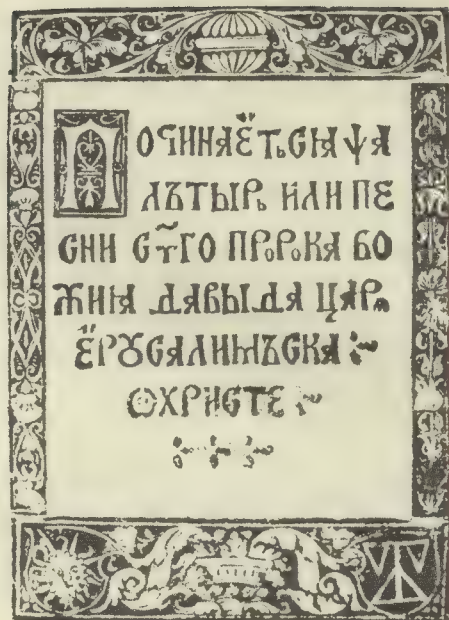 ПОЧИНАЁТЬСЯ ѰА
ЛЪТЫРЬ ИЛИ ПЕ
СНИ СТ҃ГО ПРОРОКА БО
ЖИЯ ДАВЫДА ЦАРА
ЁРꙊСАЛИМЪСКА
ѠХРИСТЕ